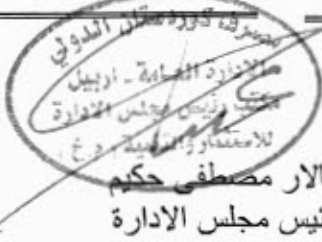 مصرف كوردستان الدولي
الادارة العامة - اربيل
مكتب رئيس مجلس الادارة
للاستثمار والتنمية . خ . م
الار مصطفى حكيم
ئيس مجلس الادارة